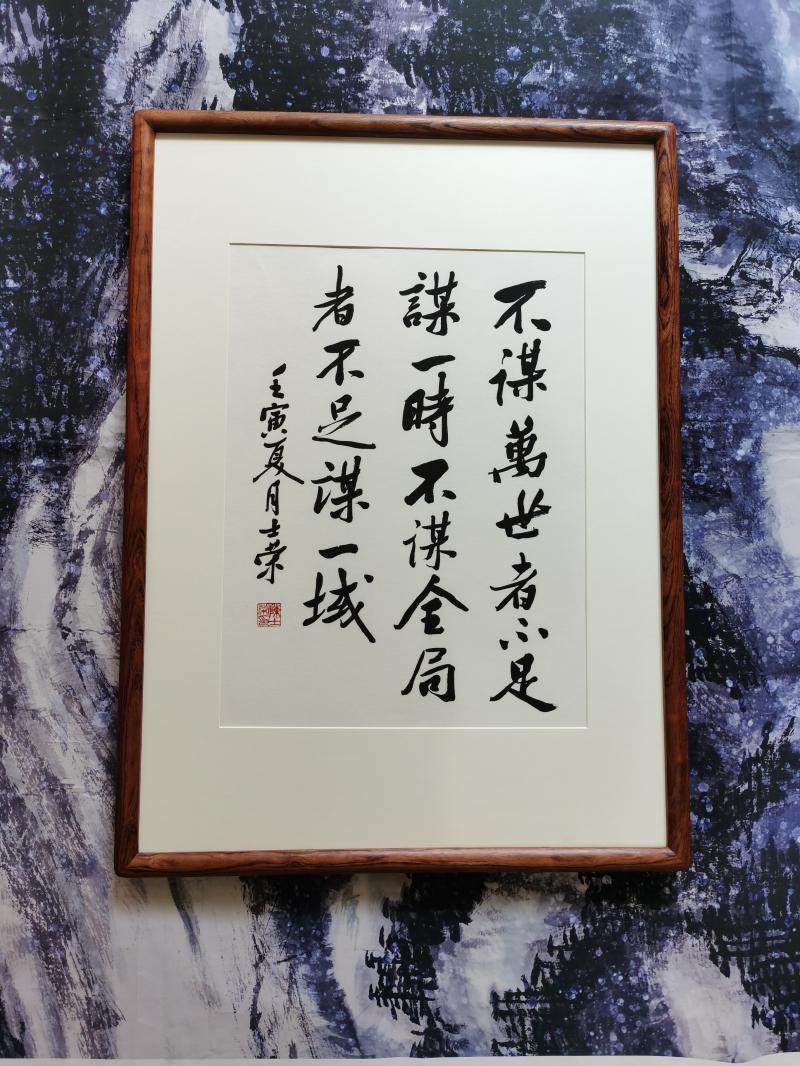 不謀萬世者不足
謀一時不謀全局
者不足謀一域
壬寅夏月士荣